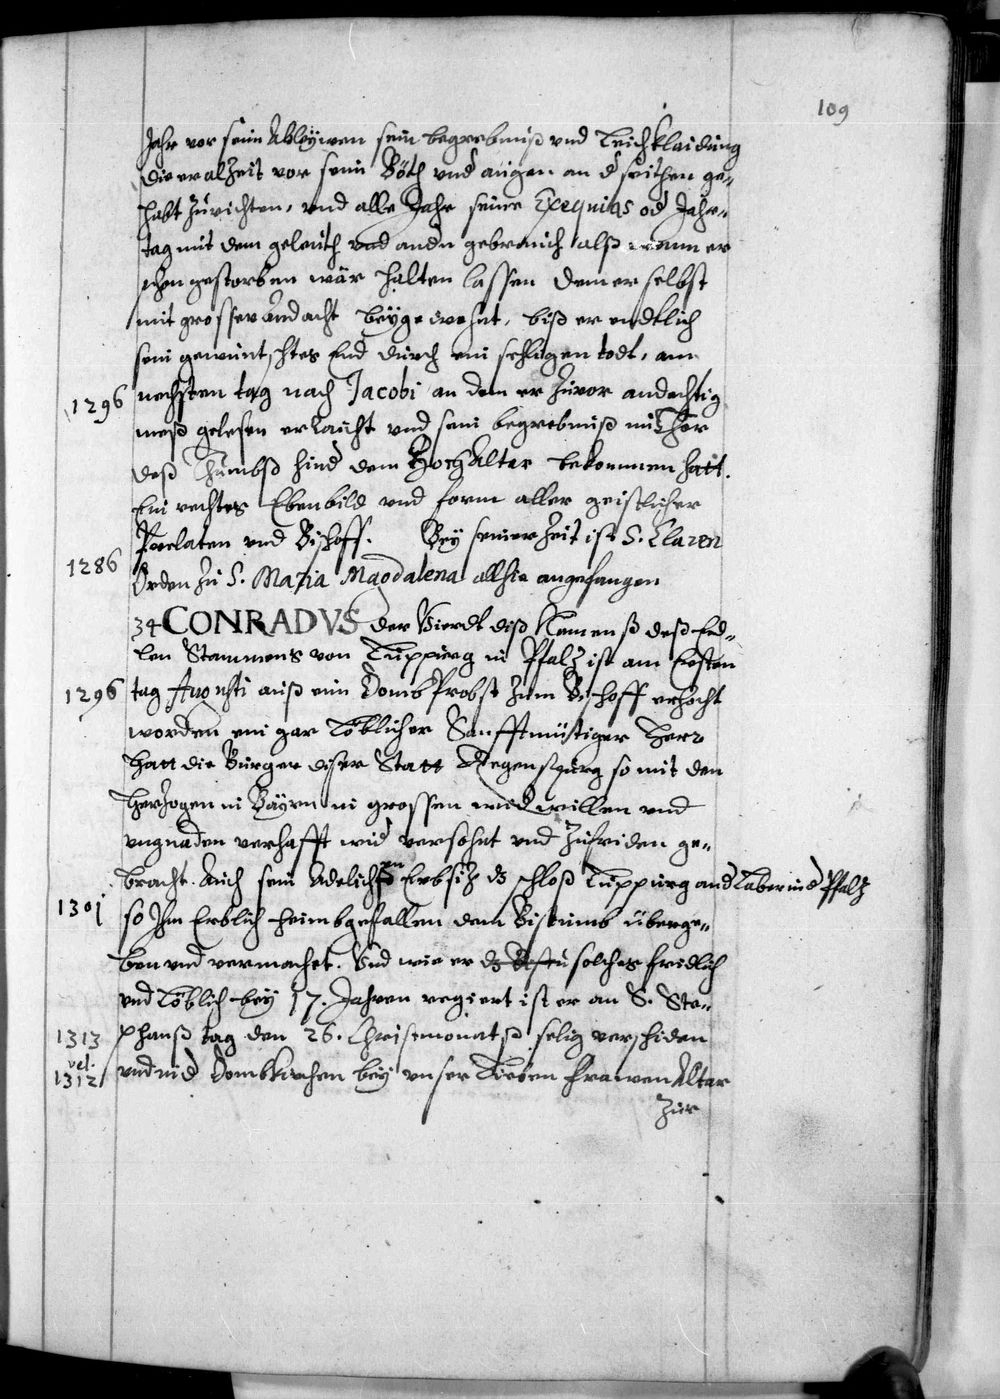 109
Jahr vor seim Ableÿwen sein begrebnuß vnd Leichklaidung
die er alzeit vor seim Böth vnd augen an d seithen ge-
habt zurichten, vnd alle Jahr seine Exequias od Jahr-
tag mit dem geleuth vnd andn gebreuch alß wann er
schon gestorben wär halten lassen dem er selbst
mit grosser Andacht beÿgewohnt, biß er endtlich
sein gewüntschtes End durch ein schlagen todt, am
1296 nechsten tag nach Jacobi an dem er zuvor andechtig
meß gelesen erlaicht vnd sein begrebnuß im Chor
deß Thumbß hind dem Hoch Altar bekommen hatt.
Ein rechtes Ebenbild vnd form aller geistlicher
Prelaten vnd Bischoff. Beÿ seiner Zeit ist S. Claren
1286 Orden zu S. Maria Magdalena alhie angefangen
34 CONRADVS der Vierdt diß Namenß deß Ed-
len Stammens von Luppurg in Pfalz ist am Ersten
1296 tag Augusti auß eim Domb Probst zum Bischoff erhocht
worden ein gar Löblicher Sanfftmüttiger Herr
hatt die Burger diser Statt Regenspurg so mit den
Herzogen in Baÿrn in grossen widwillen vnd
vngnaden verhafft wid versohnt vnd zufriden ge-
bracht. Auch sein Adelichen Erbsiz dz schloß Luppurg and Laber in d Pfalz
1301 so Ihm Erblich heimbgefallen dem Bistumb überge-
ben vnd vermachet. Vnd wie er dz Bistu solches fridlich
vnd Löblich beÿ 17. Jahren regiert ist er an S. Ste-
1313 phanß tag den 26. Christmonatß selig verschiden
vel.
1312 vnd in d Dombkirchen beÿ vnser Lieben frawen Altar
zur